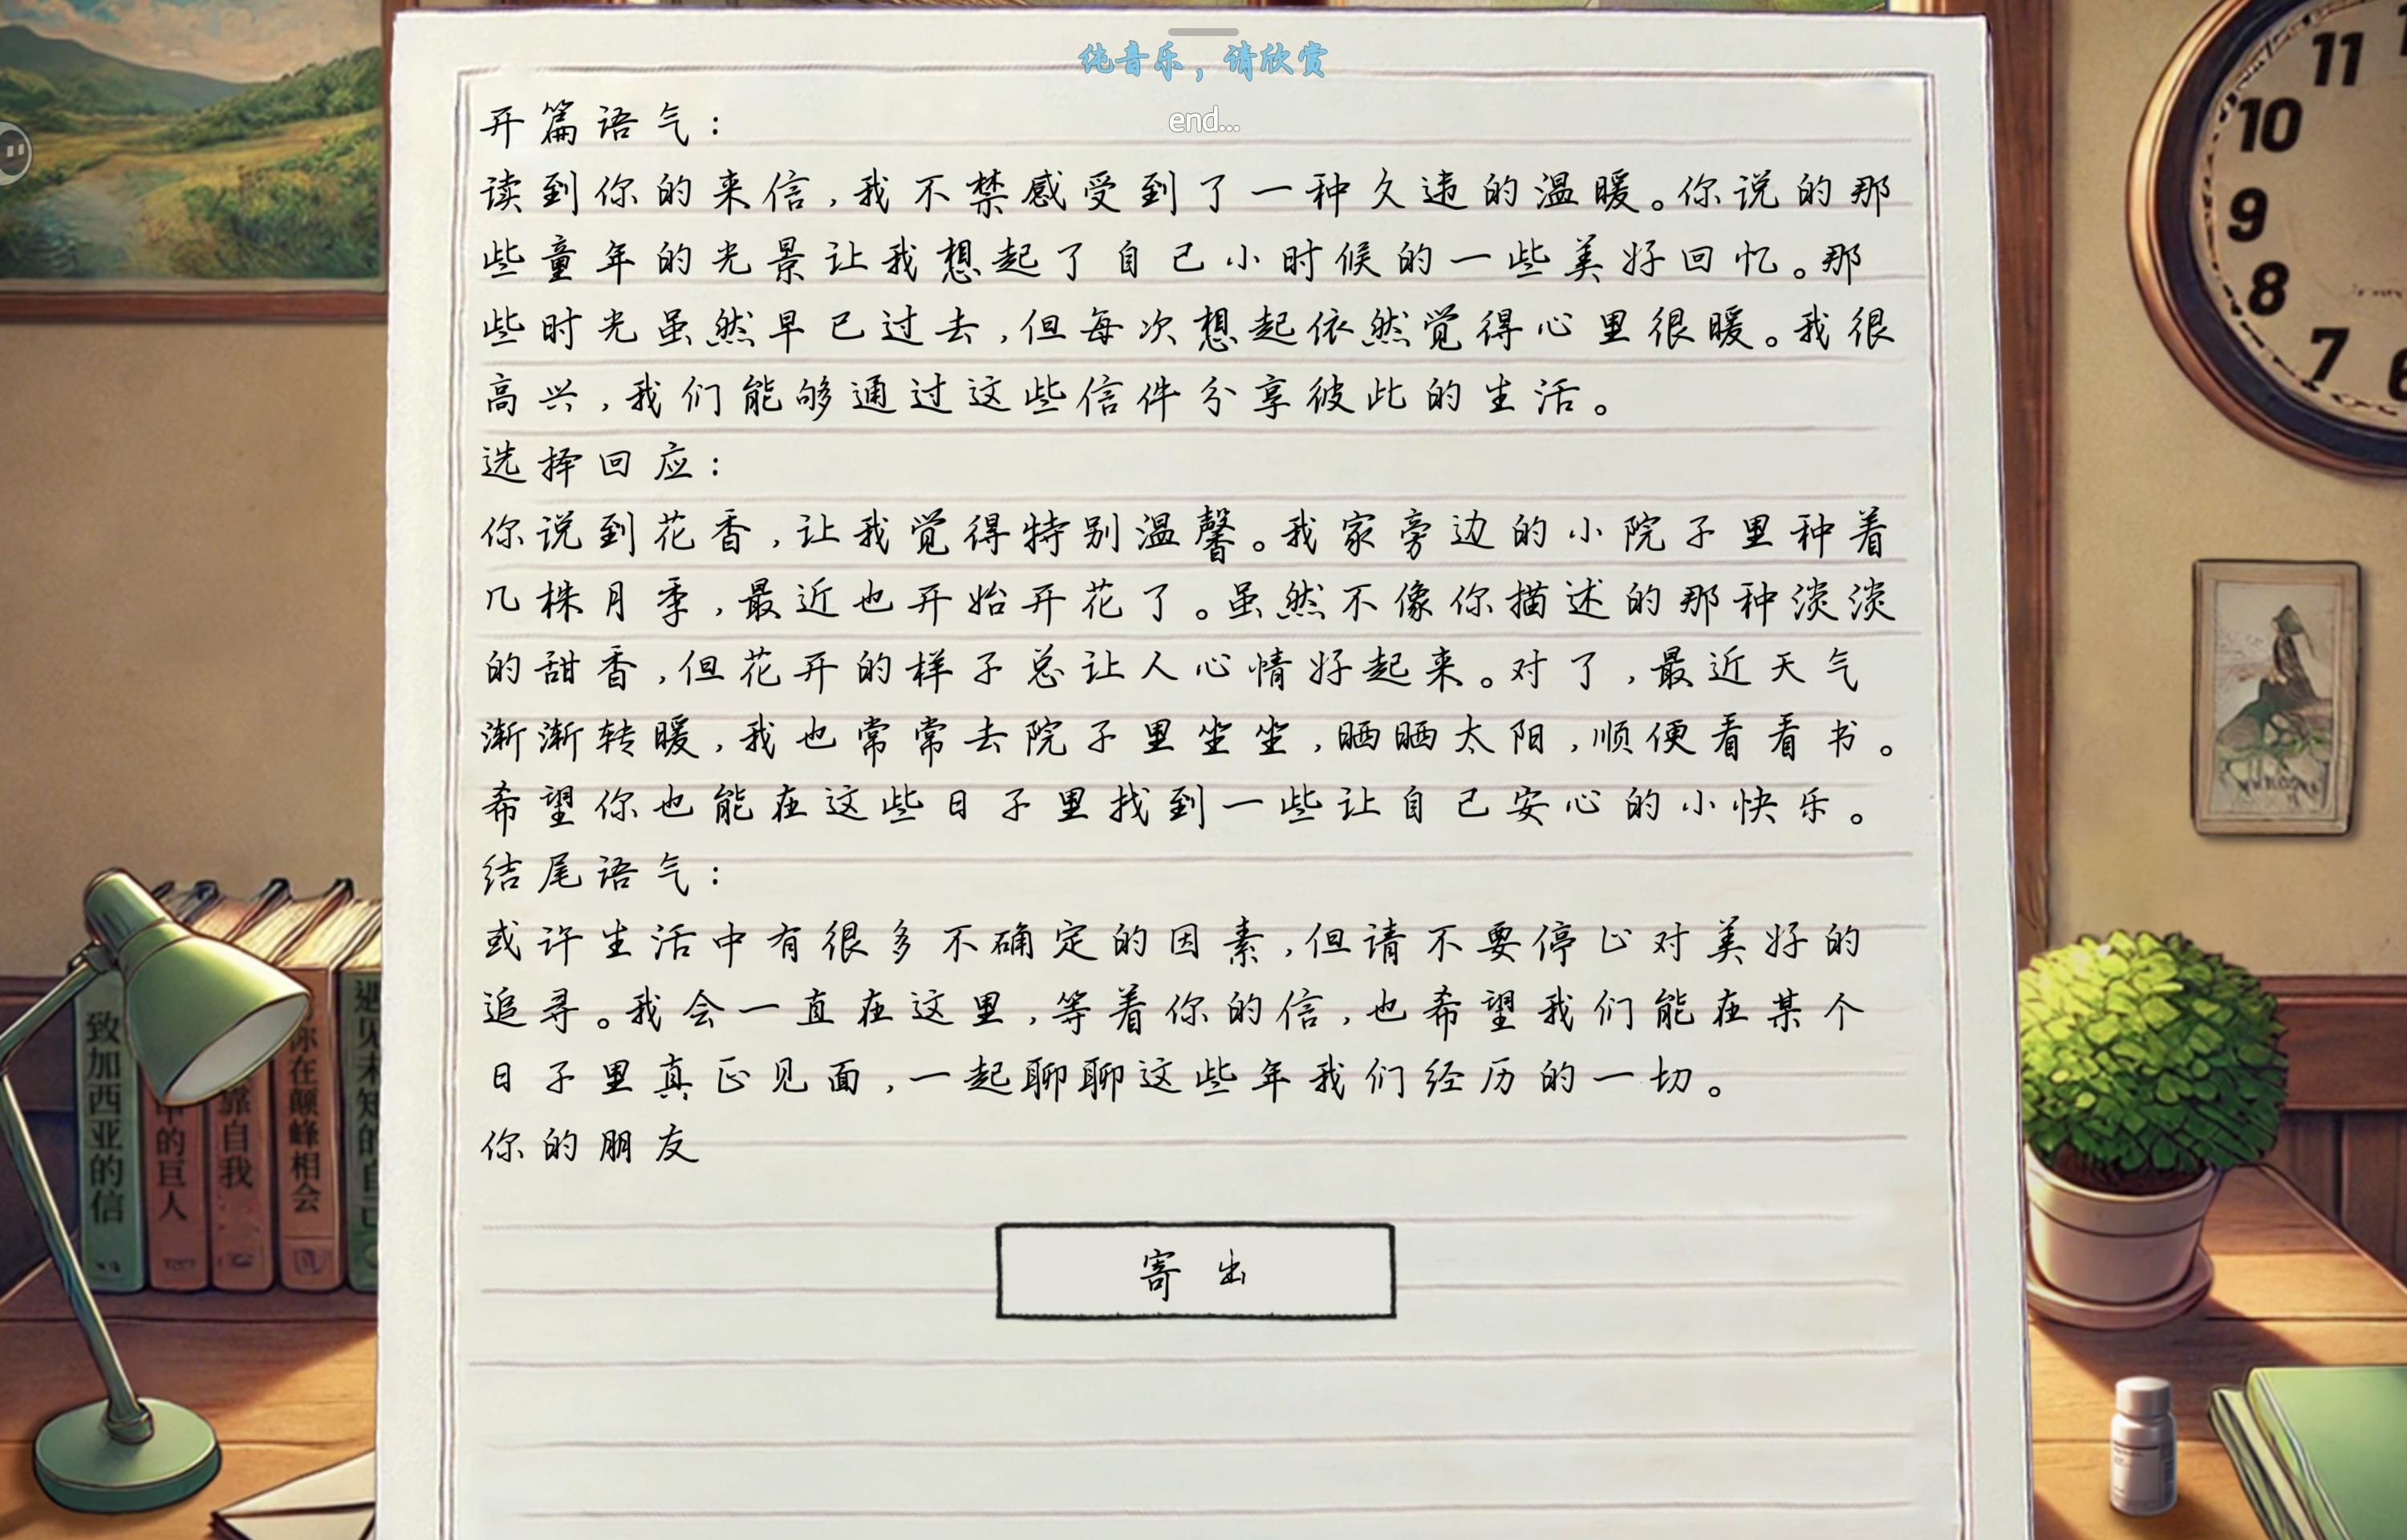 纯音乐，请欣赏
end...
开篇语气：
读到你的来信，我不禁感受到了一种久违的温暖。你说的那
些童年的光景让我想起了自己小时候的一些美好回忆。那
些时光虽然早已过去，但每次想起依然觉得心里很暖。我很
高兴，我们能够通过这些信件分享彼此的生活。
选择回应：
你说到花香，让我觉得特别温馨。我家旁边的小院子里种着
几株月季，最近也开始开花了。虽然不像你描述的那种淡淡
的甜香，但花开的样子总让人心情好起来。对了，最近天气
渐渐转暖，我也常常去院子里坐坐，晒晒太阳，顺便看看书。
希望你也能在这些日子里找到一些让自己安心的小快乐。
结尾语气：
或许生活中有很多不确定的因素，但请不要停止对美好的
追寻。我会一直在这里，等着你的信，也希望我们能在某个
日子里真正见面，一起聊聊这些年我们经历的一切。
你的朋友
寄出
11
10
9
8
7
6
致加西亚的信
的巨人
靠自我
你在巅峰相会
遇见未知的自己